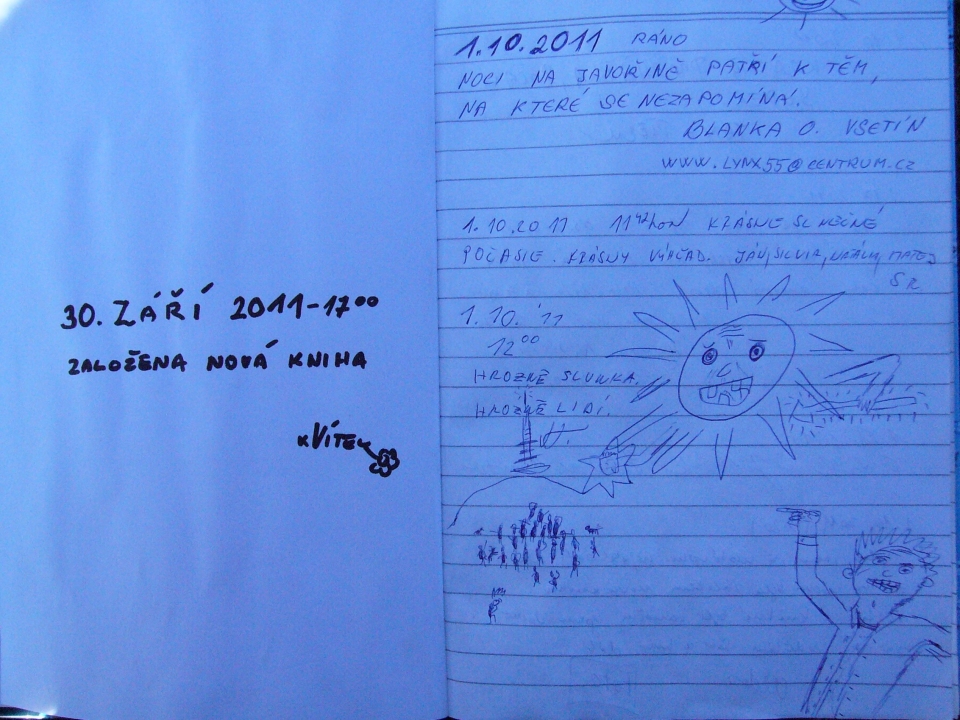 30. ZÁŘÍ 2011-17⁰⁰
ZALOŽENA NOVÁ KNIHA
KVÍTEK
1.10.2011 RÁNO
NOCI NA JAVOŘINĚ PATŘÍ K TĚM,
NA KTERÉ SE NEZAPOMÍNÁ.
BLANKA O. VSETÍN
WWW.LYNX55@CENTRUM.CZ
1.10.2011 11⁴²hod KRÁSNE SLNEČNÉ
POČASIE. KRÁSNY VÝHĽAD. JÁN, SILVIA, NATÁLIA, MATEJ
SR
1.10.'11
12⁰⁰
HROZNĚ SLUNKA.
HROZNĚ LIDÍ.